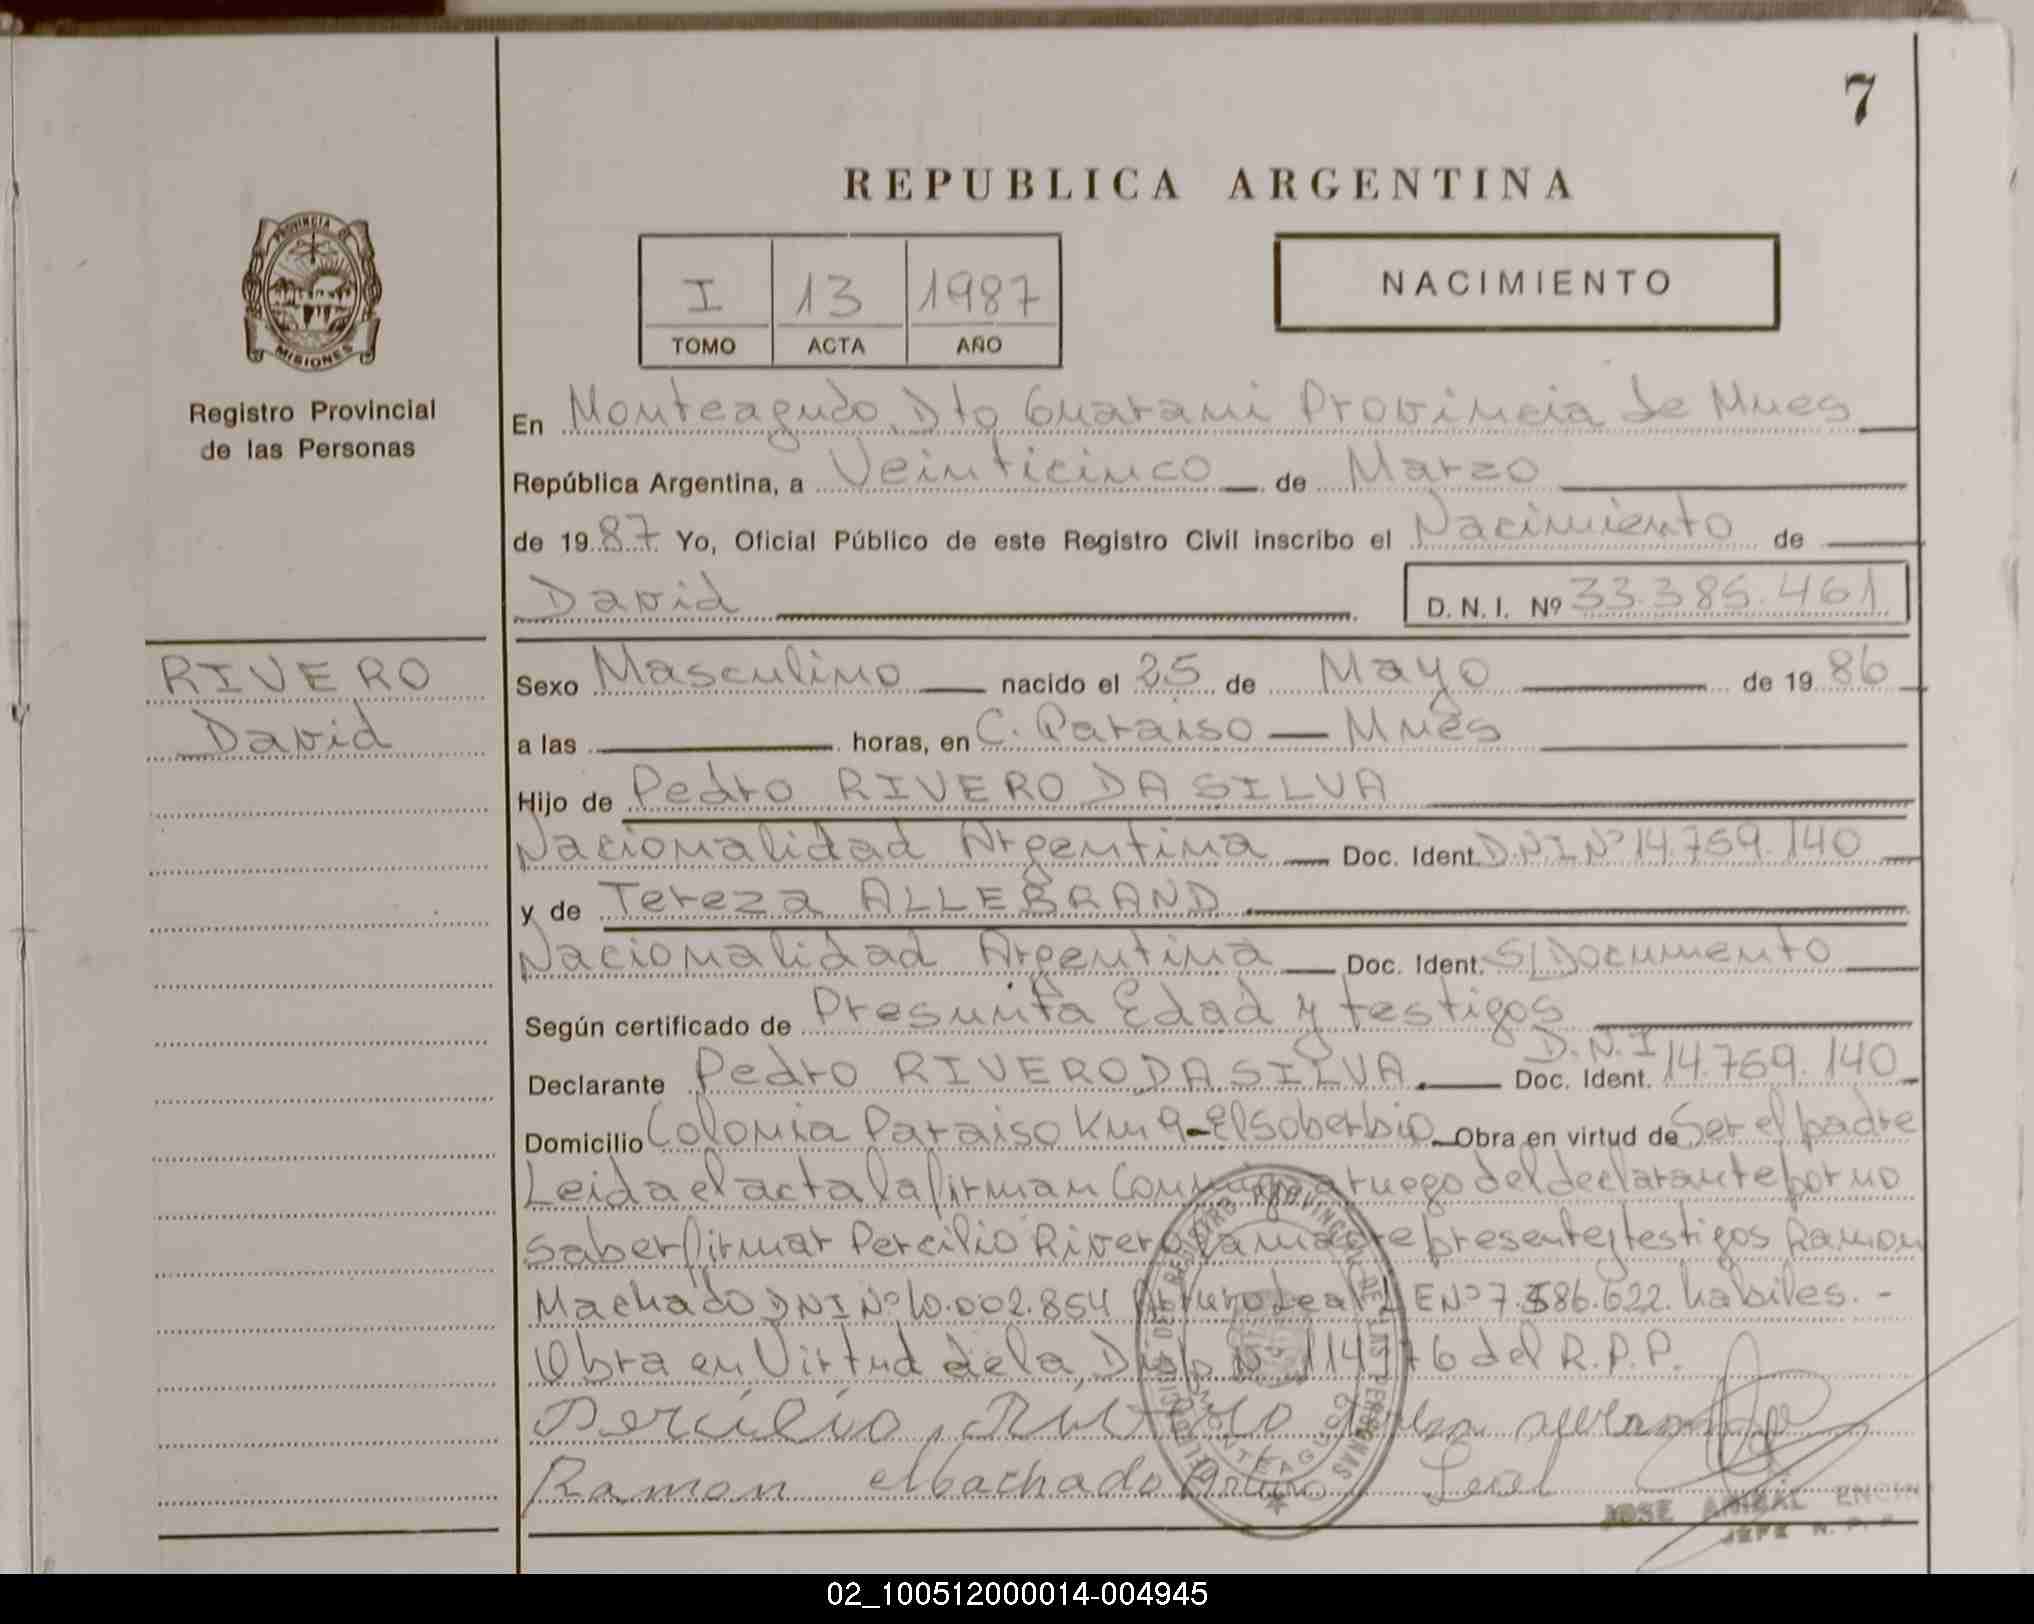 7
REPUBLICA ARGENTINA
PROVINCIA DE
MISIONES
Registro Provincial
de las Personas
I 13 1987
TOMO ACTA AÑO
NACIMIENTO
En Monteagudo Dto Guarani Provincia de Mnes
República Argentina, a Veinticinco de Marzo
de 1987 Yo, Oficial Público de este Registro Civil inscribo el Nacimiento de
David D. N. I. Nº 33.385.461
RIVERO
David
Sexo Masculino nacido el 25 de Mayo de 1986
a las horas, en C. Paraiso — Mnes
Hijo de Pedro RIVERO DA SILVA
Nacionalidad Argentina Doc. Ident. D.N.I Nº 14.759.140
y de Tereza ALLEBRAND
Nacionalidad Argentina Doc. Ident. S/Documento
Según certificado de Presunta Edad y testigos
Declarante Pedro RIVERO DA SILVA Doc. Ident. D.N.I 14.759.140
Domicilio Colonia Paraiso Km 9-El soberbio Obra en virtud de Ser el padre
Leida el acta la firman Conmigo a ruego del declarante por no
saber firmar Percilio Rivero la madre presente y testigos Ramon
Machado DNI Nº 10.002.854 Arturo Leal L E Nº 7.586.622. habiles. -
Obra en Virtud de la Disp Nº 114 76 del R.P.P.
Percilio Rivero
Ramon Machado Arturo Leal
REGISTRO PROVINCIAL DE LAS PERSONAS
MONTEAGUDO
JOSE ANIBAL
JEFE R. P.
02_100512000014-004945